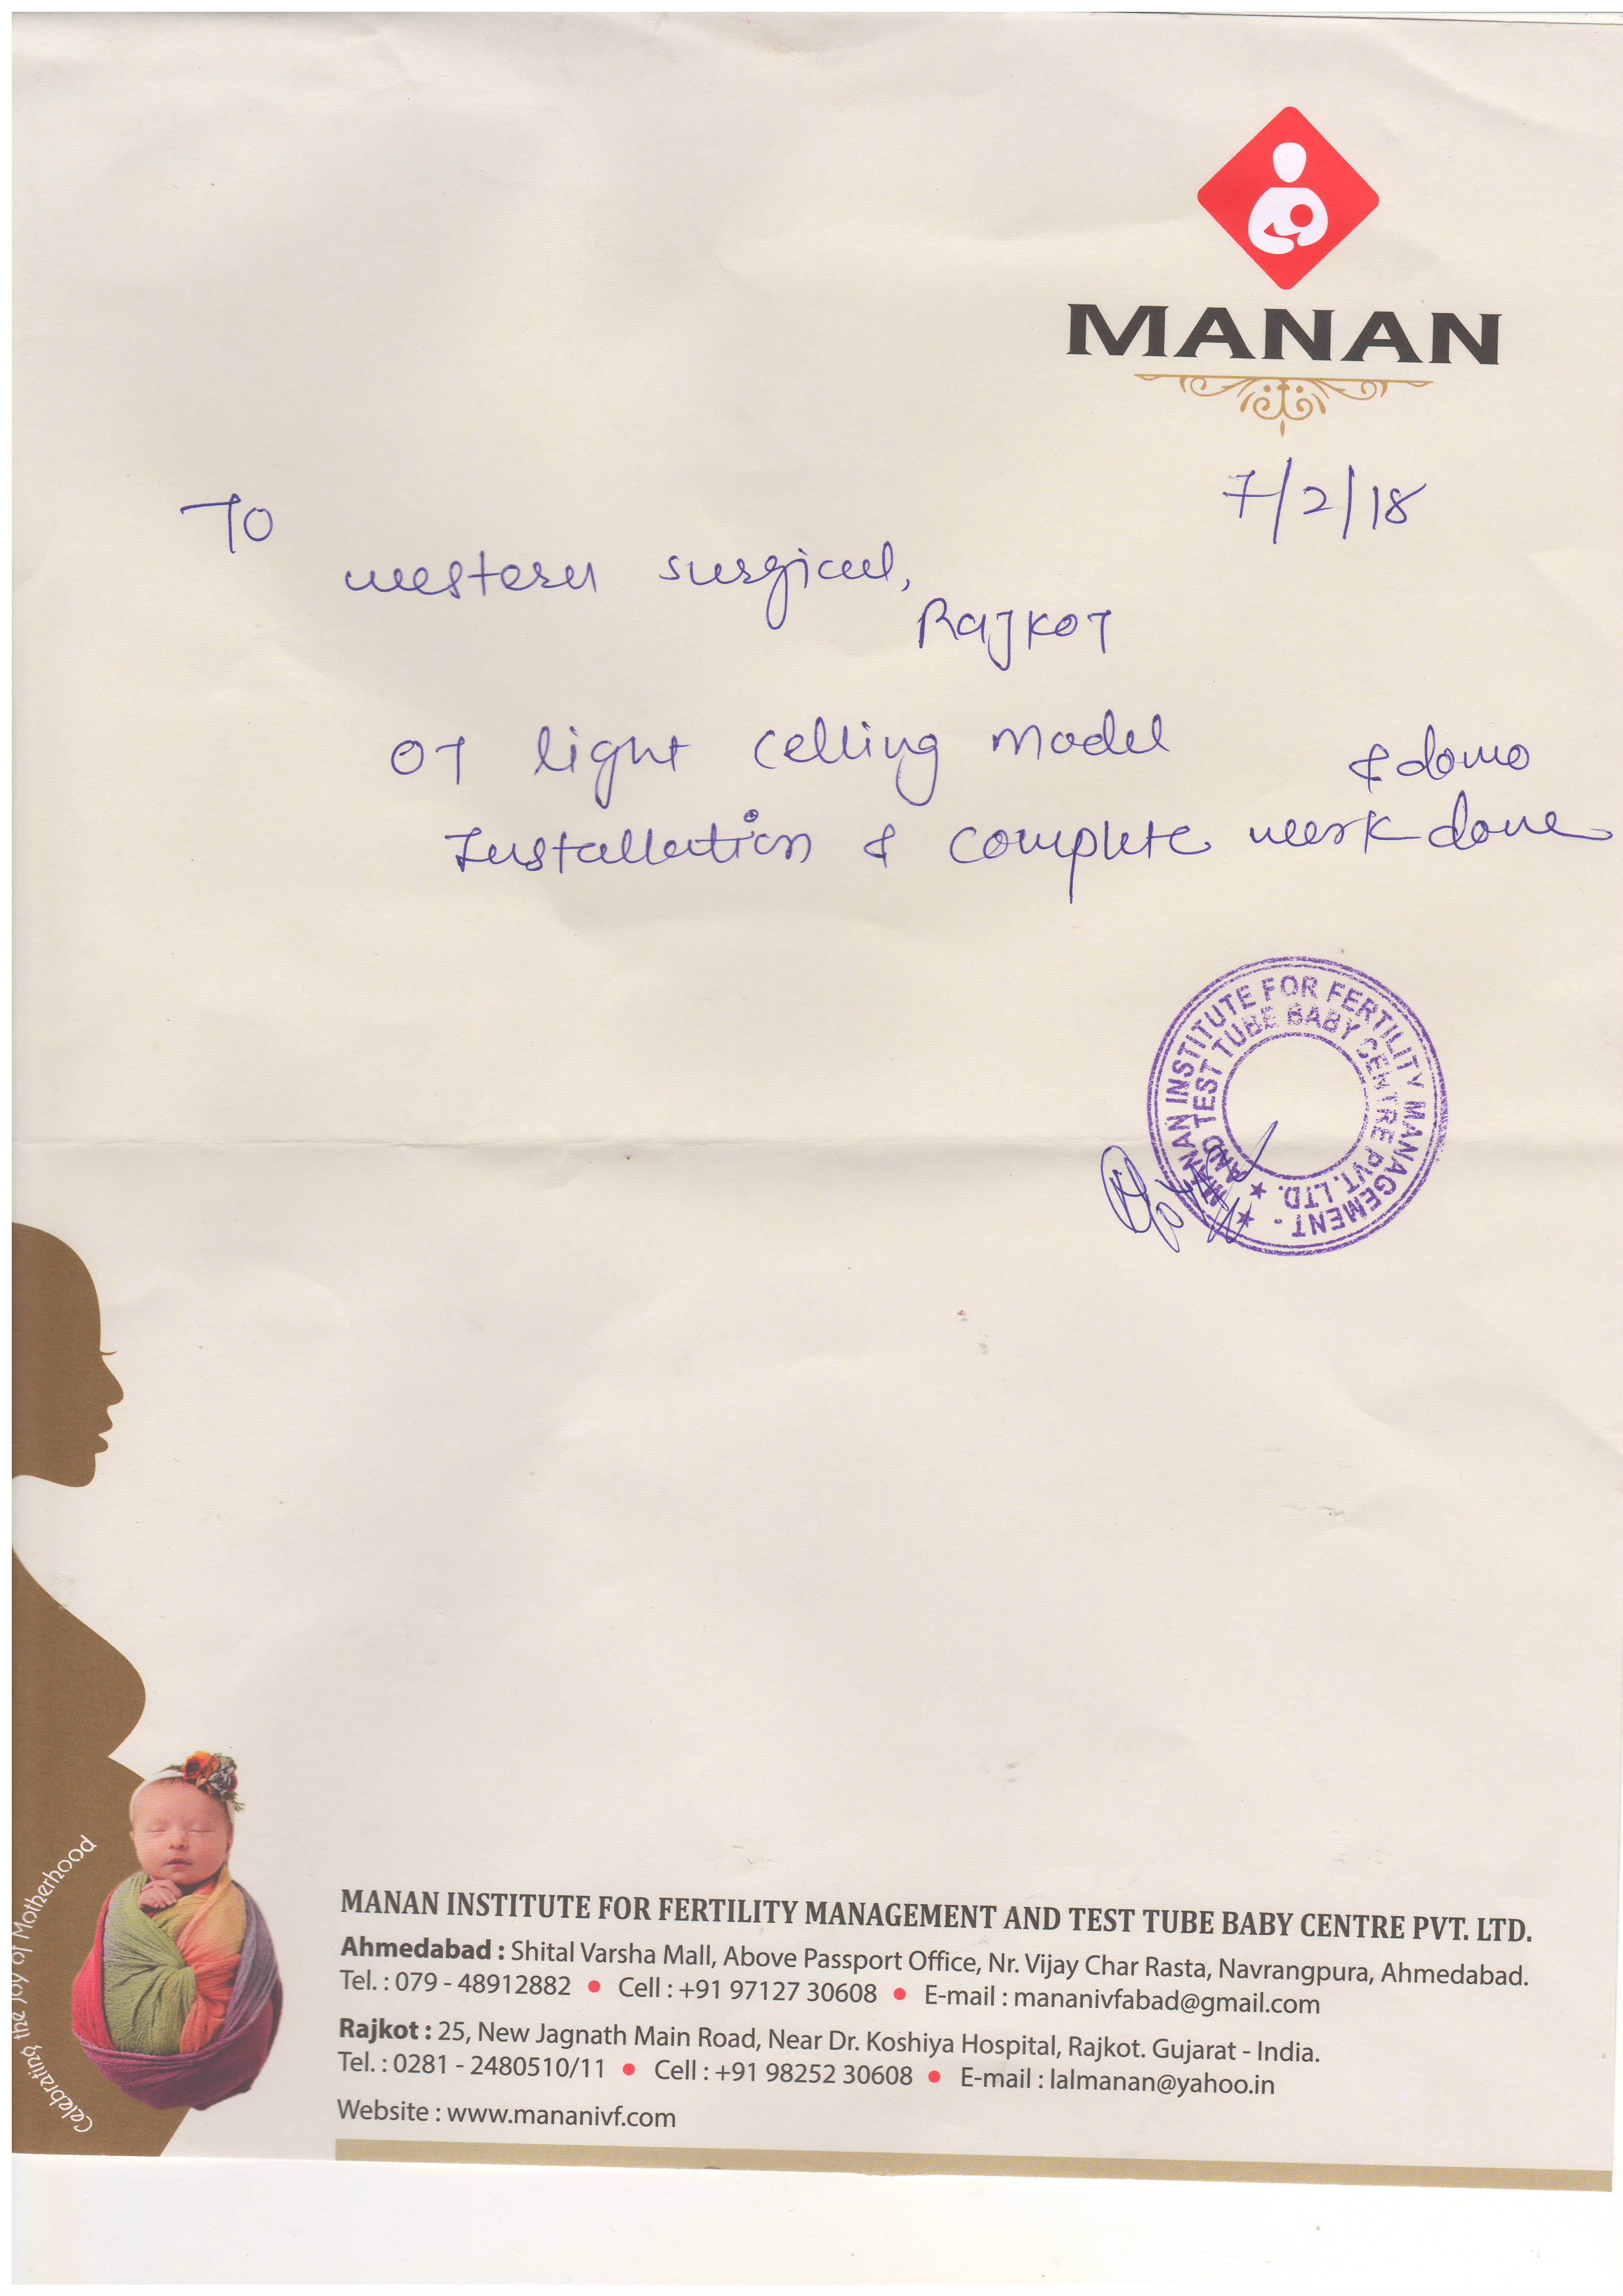 MANAN
7/2/18
To
western surgical,
Rajkot
OT light Celling Model
& domo
Installation & complete work done
MANAN INSTITUTE FOR FERTILITY MANAGEMENT -
AND TEST TUBE BABY CENTRE PVT. LTD.
Celebrating the Joy of Motherhood
MANAN INSTITUTE FOR FERTILITY MANAGEMENT AND TEST TUBE BABY CENTRE PVT. LTD.
Ahmedabad : Shital Varsha Mall, Above Passport Office, Nr. Vijay Char Rasta, Navrangpura, Ahmedabad.
Tel. : 079 - 48912882 • Cell : +91 97127 30608 • E-mail : mananivfabad@gmail.com
Rajkot : 25, New Jagnath Main Road, Near Dr. Koshiya Hospital, Rajkot. Gujarat - India.
Tel. : 0281 - 2480510/11 • Cell : +91 98252 30608 • E-mail : lalmanan@yahoo.in
Website : www.mananivf.com